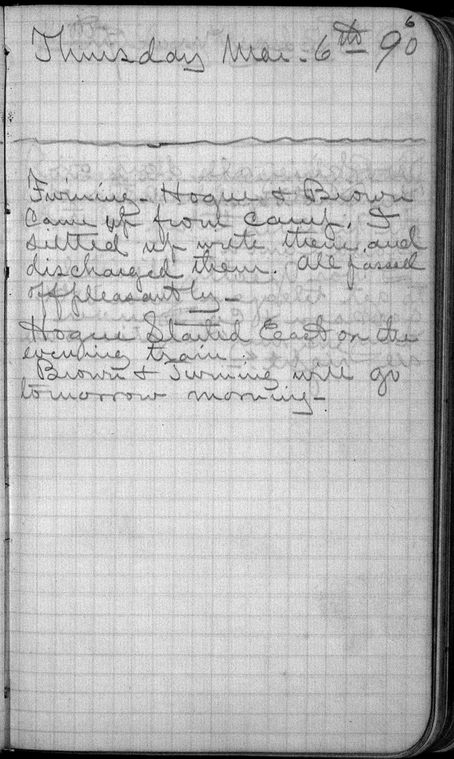 6
Thursday Mar. 6th 90
Twining - Hogue & Brown
Came up from camp. I
settled up with them and
discharged them. All passed
off pleasantly -
Hogue Started East on the
evening train.
Brown & Twining will go
tomorrow morning -